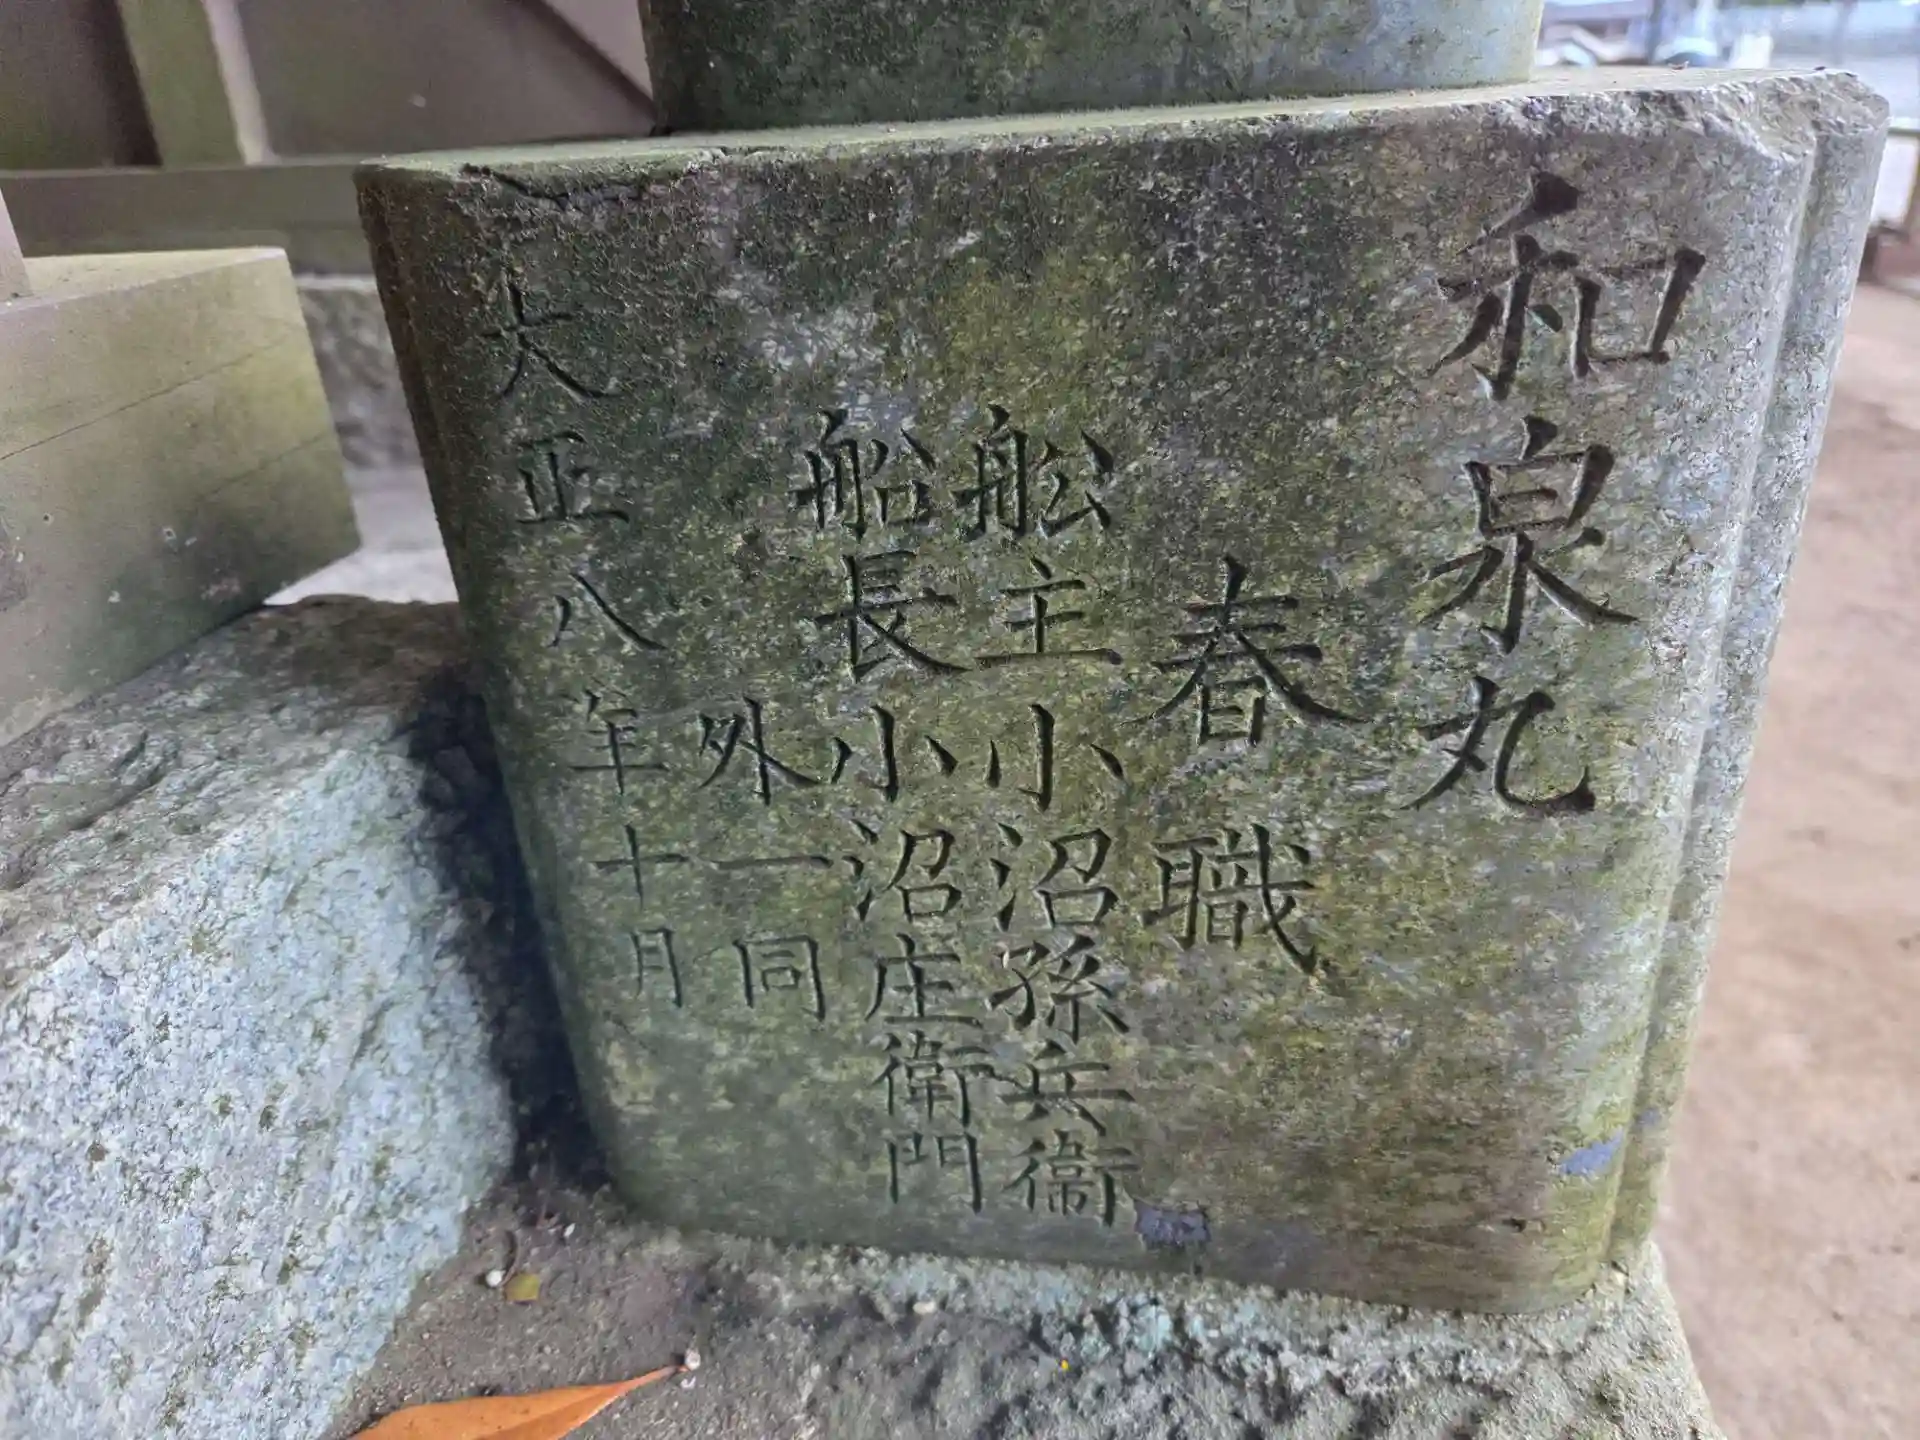 和泉丸
春職
舩主小沼孫兵衞
船長小沼庄衛門
外一同
大正八年十月